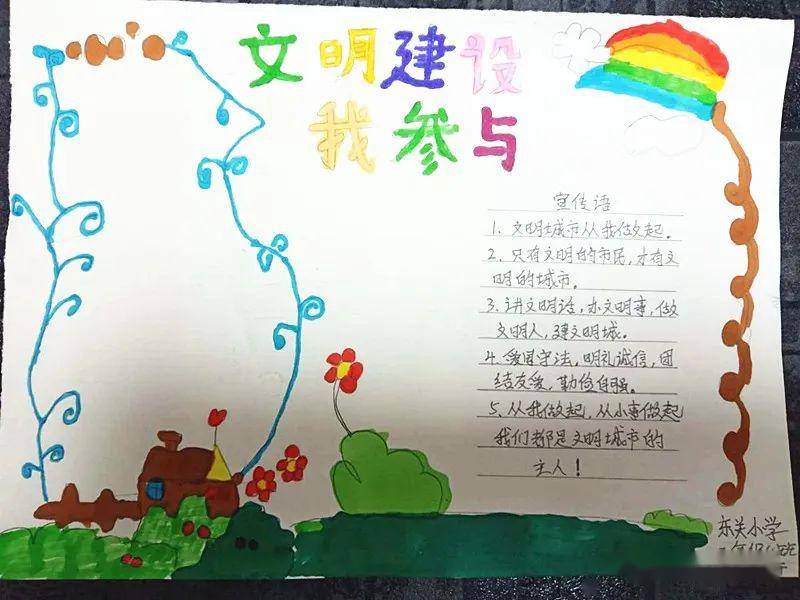 文明建设
我参与
宣传语
1. 文明城市从我做起。
2. 只有文明的市民，才有文
明的城市。
3. 讲文明话，办文明事，做
文明人，建文明城。
4. 爱国守法，明礼诚信，团
结友爱，勤俭自强。
5. 从我做起，从小事做起
我们都是文明城市的
主人！
东关小学